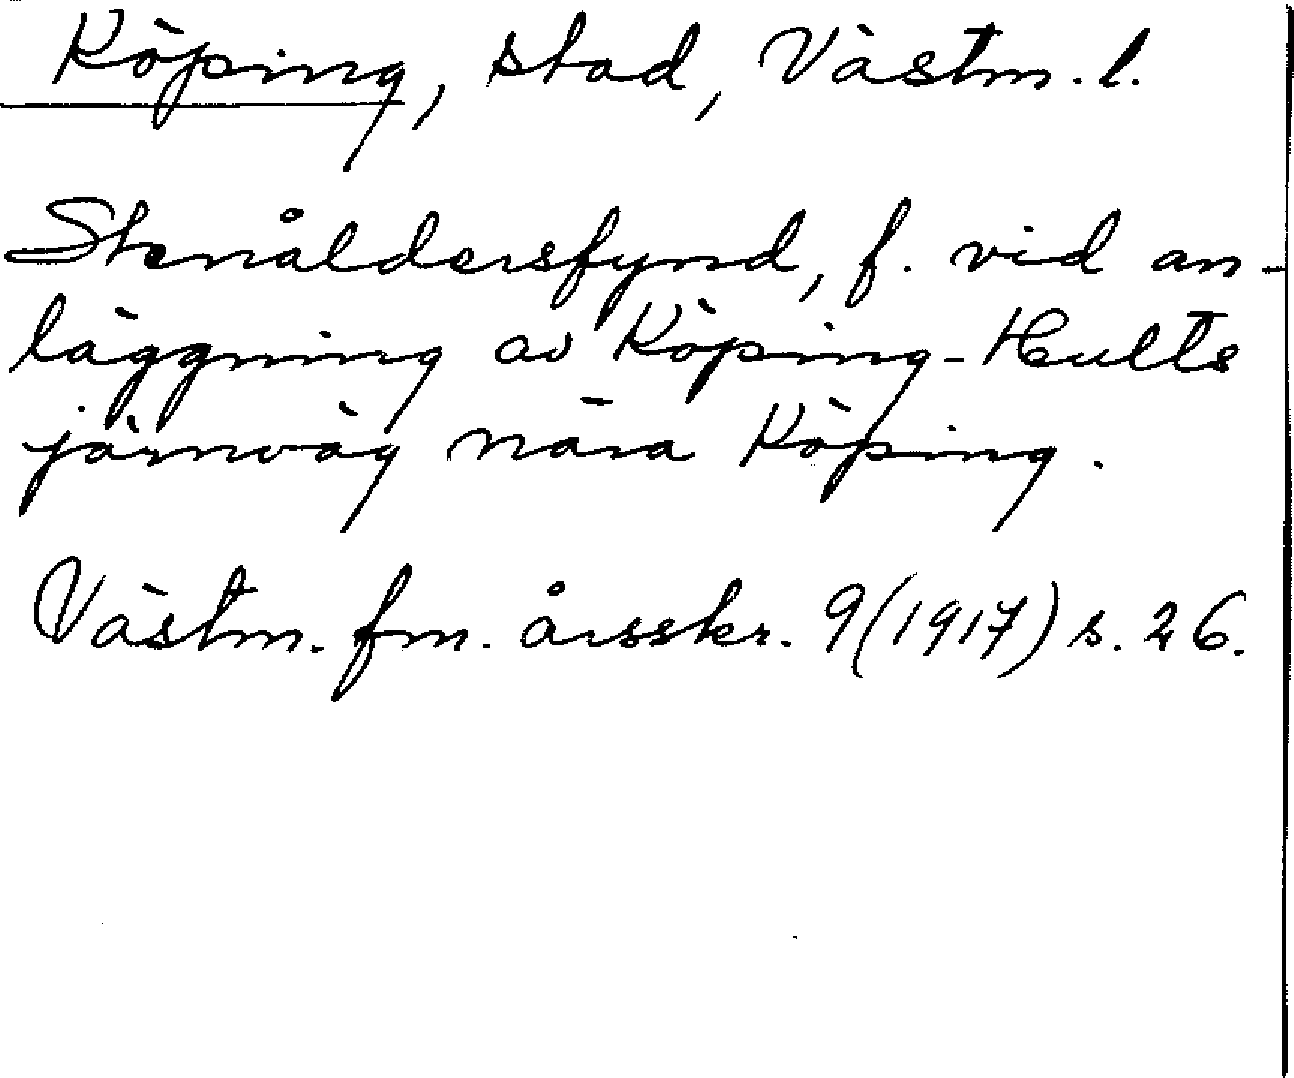 Köping, stad, Västm. l.
Stenåldersfynd, f. vid an-
läggning av Köping-Hults
järnväg nära Köping.
Västm. fm. årsskr. 9(1917) s. 26.